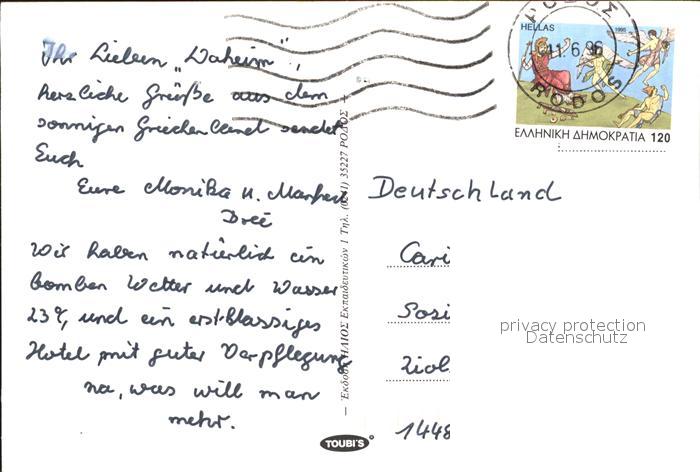 Ihr Lieben "Daheim",
herzliche Grüße aus dem
sonnigen Griechenland sendet
Euch
Eure Monika u. Manfred
Wir haben natürlich ein
bomben Wetter und Wasser
23°, und ein erstklassiges
Hotel mit guter Verpflegung
na, was will man
mehr.
— Έκδοση ΗΛΙΟΣ Εκπαιδευτικών 1 Τηλ. (0241) 35227 ΡΟΔΟΣ —
TOUBI'S
HELLAS
1995
ΡΟΔΟΣ
11.6.96
RODOS
ΕΛΛΗΝΙΚΗ ΔΗΜΟΚΡΑΤΙΑ 120
Deutschland
Cari
Sozi
1448
privacy protection
Datenschutz